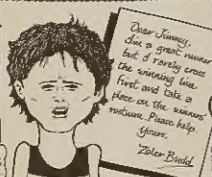 Dear Jimmy,
I'm a great runner
but I rarely cross
the winning line
first and take a
place on the winners'
rostrum. Please help.
Yours,
Zoler Budd